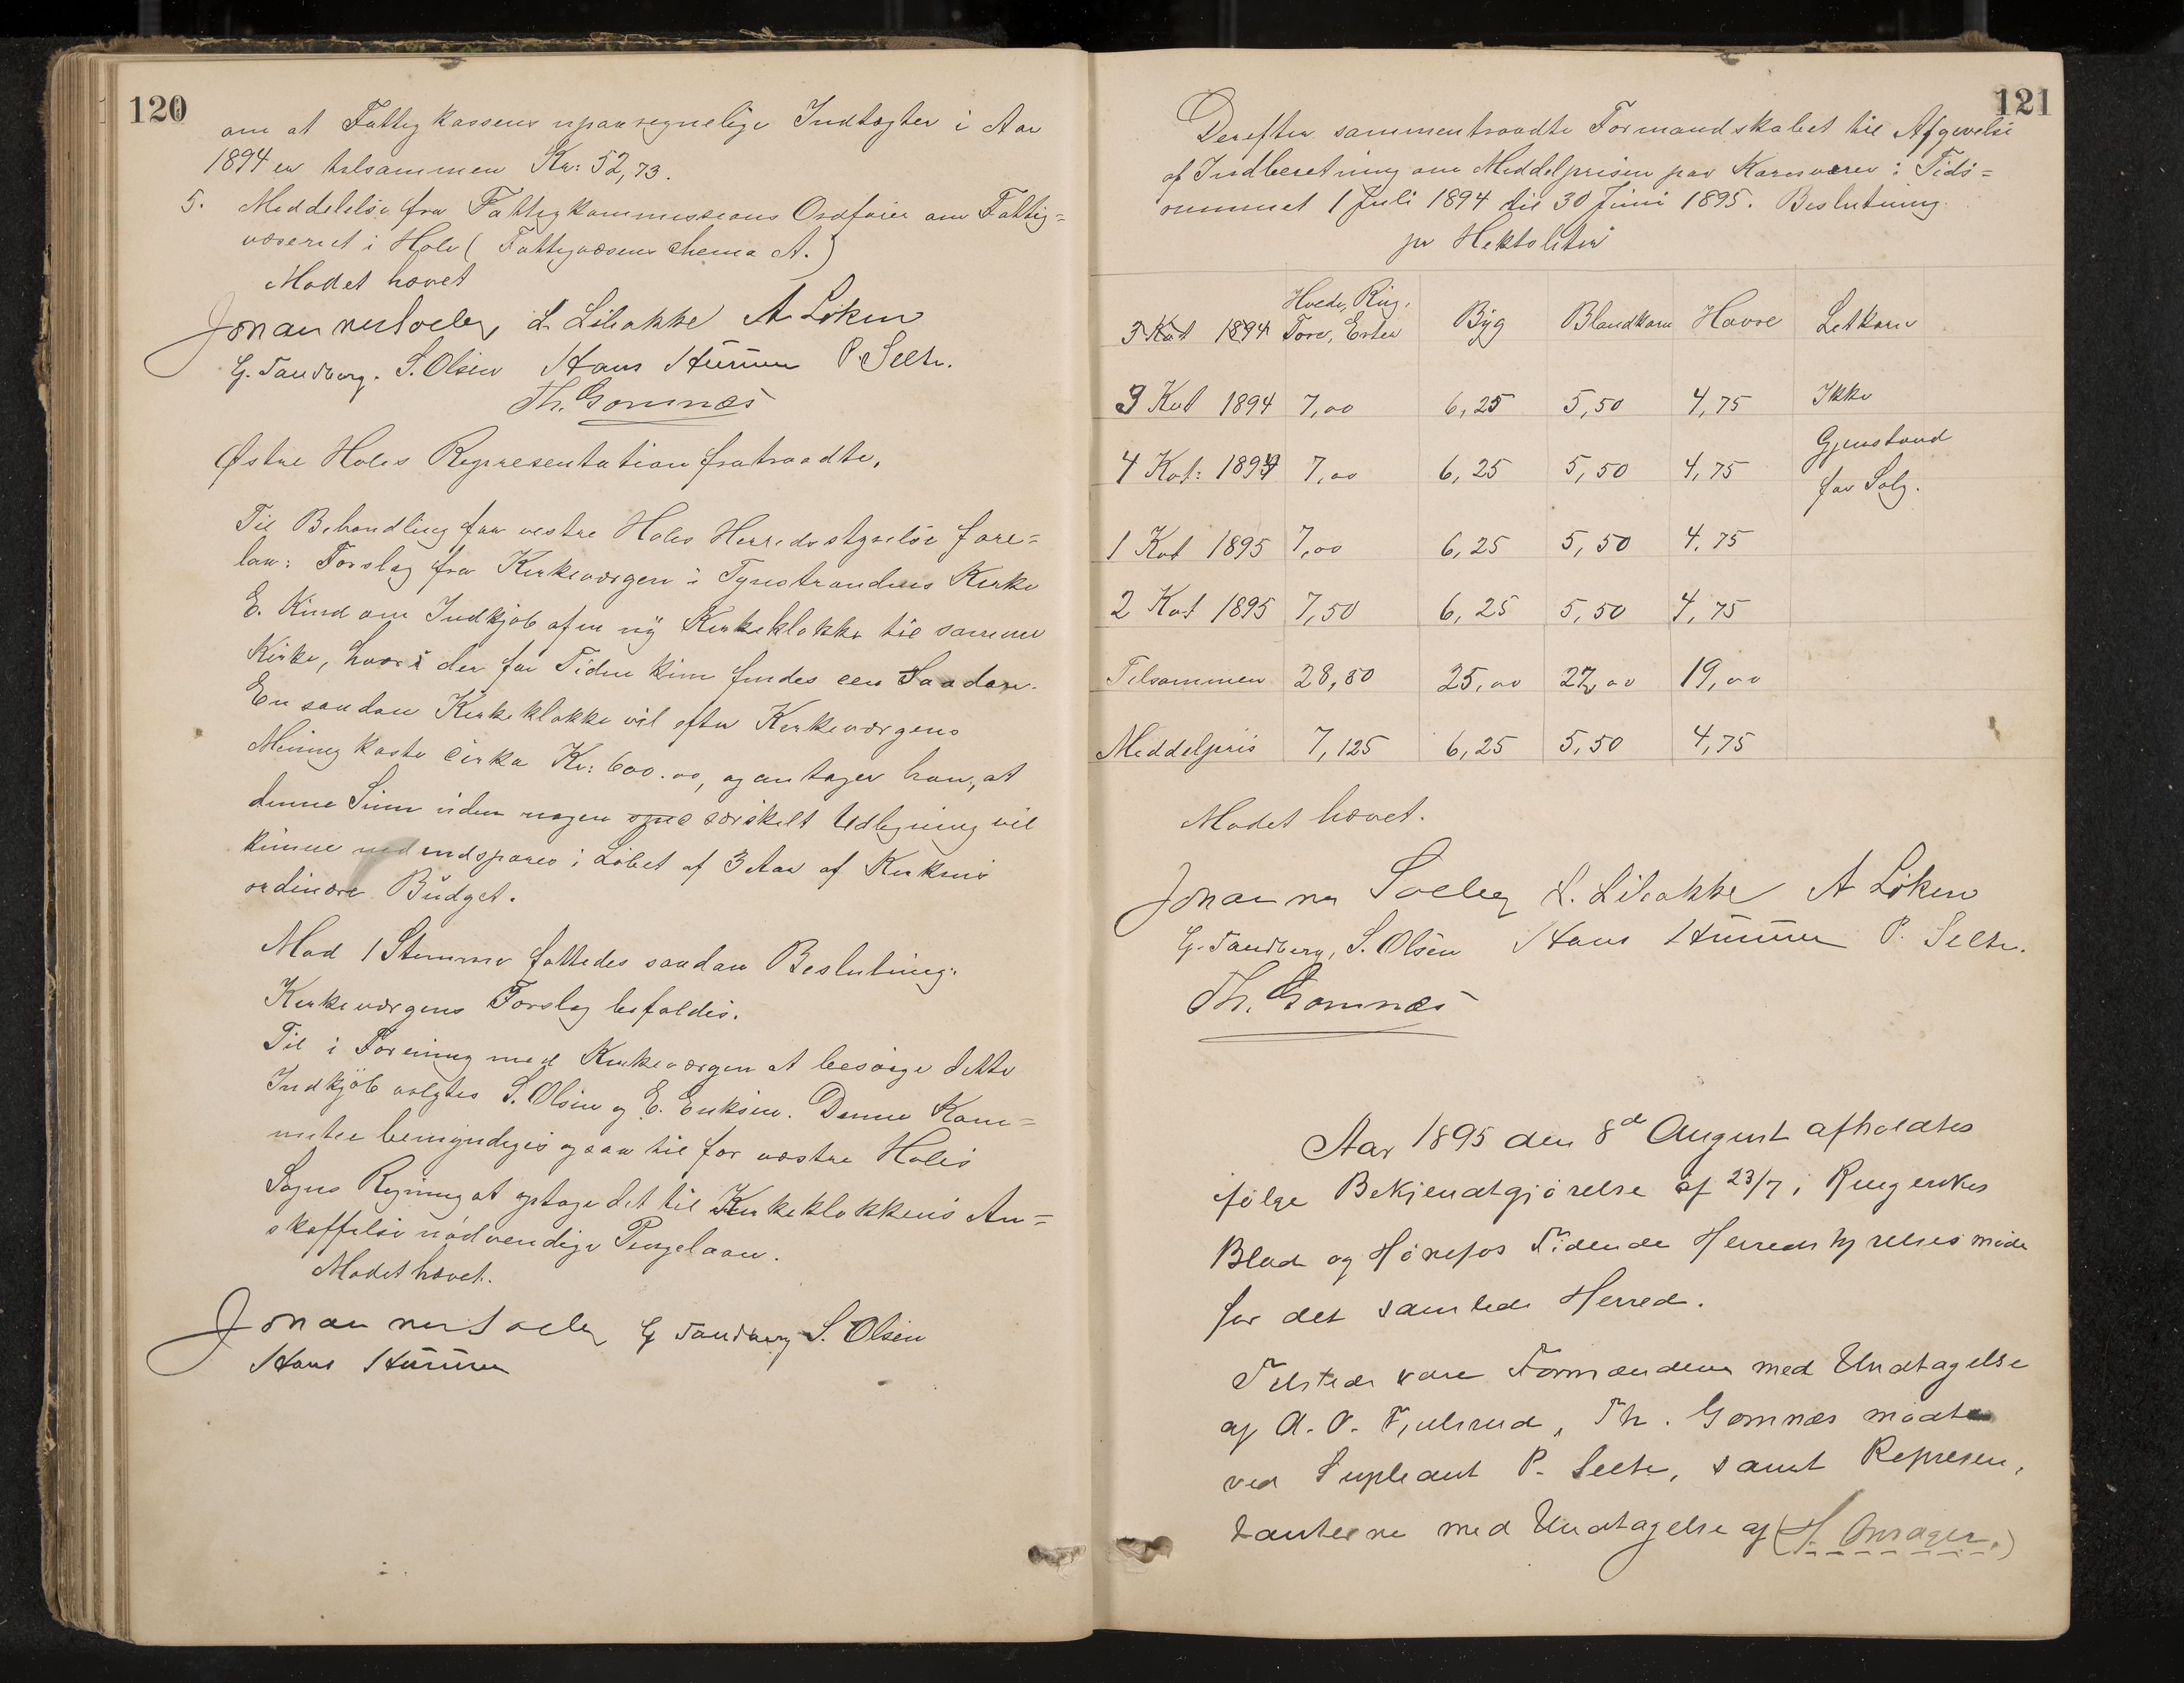 120
om at Fattigkassens upaaregnelige Indtægter i Aar
1894 er tilsammen Kr: 52,73.
5. Meddelelse fra Fattigkommissions Ordfører om Fattig=
væsenet i Hole (Fattigvæsens Schema A.)
Mødet hævet
L. Libakke A Löken
G. Tandberg. S. Olsen Hans P. Selte.
Th. Gomnæs
Østre Holes Repræsentation fratraadte.
Til Behandling for vestre Holes Herredsstyrelse fore=
laa: Forslag fra Kirkeværgen i Tyristrandens Kirke
E. Kind om Indkjøb af en ny Kirkeklokke til samme
Kirke, hvori der for Tiden kun findes een Saadan.
En saadan Kirkeklokke vil efter Kirkeværgens
Mening koste cirka Kr: 600.00, og antager han, at
denne Sum uden nogen særskilt Udligning vil
kunne indspares i Løbet af 3 Aar af Kirkens
ordinære Budget.
Mod 1 Stemme fattedes saadan Beslutning:
Kirkeværgens Forslag bifaldes.
Til i Forening med Kirkeværgen at besørge dette
Indkjøb valgtes S. Olsen og E. Eriksen. Denne Kom=
mitee bemyndiges ogsaa til for vestre Holes
Sogns Regning at optage det til Kirkeklokkens An=
skaffelse nødvendige Pengelaan.
Mødet hævet.
G Tandberg S. Olsen
Hans
121
Derefter sammentraadte Formandskabet til Afgivelse
af Indberetning om Middelprisen paa Kornvarer i Tids=
rummet 1 Juli 1894 til 30 Juni 1895. Beslutning
pr Hektoliter
3 Kvt 1894 Hvede, Rug, Tore, Erter Byg Blandkorn Havre Letkorn
3 Kvt 1894 7,00 6,25 5,50 4,75 Ikke
Gjenstand
4 Kvt: 1894 7,00 6,25 5,50 4,75 for Salg.
1 Kvt 1895 7,00 6,25 5,50 4,75
2 Kvt 1895 7,50 6,25 5,50 4,75
Tilsammen 28,50 25,00 22,00 19,00
Middelpris 7,125 6,25 5,50 4,75
Mødet hævet.
L. Libakke A Löken
G. Tandberg, S. Olsen Hans P. Selte.
Th. Gomnæs
Aar 1895 den 8de August afholdtes
ifølge Bekjendtgjørelse af 23/7 i Ringerikes
Blad og Hønefos Tidende Herredsstyrelsesmøde
for det samlede Herred.
Tilstede vare Formændene med Undtagelse
af A. O. Fjulsrud, Th. Gomnæs mødte
ved Supleant P. Selte, samt Represen,
tanterne med Undtagelse af (H. Onsager.)